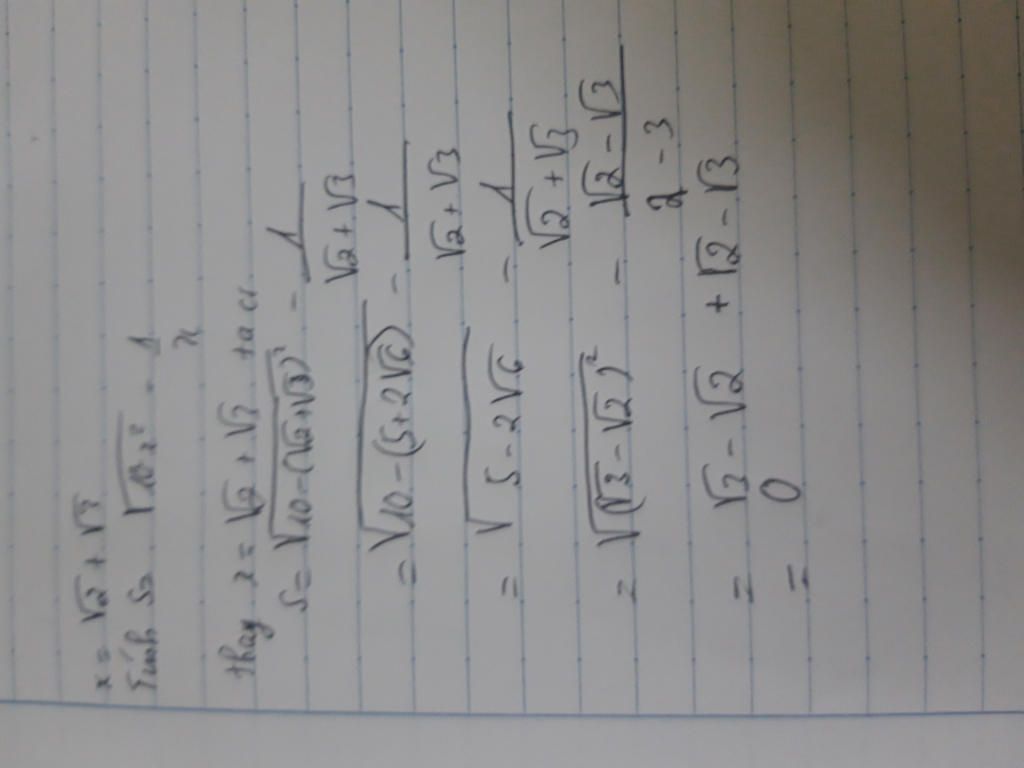 x = √2 + √3
Tính S = √(10-x²) - 1/x
thay x = √2 + √3 ta có
S = √(10-(√2+√3)²) - 1/(√2+√3)
= √(10-(5+2√6)) - 1/(√2+√3)
= √(5-2√6) - 1/(√2+√3)
= √((√3-√2)²) - (√2-√3)/(2-3)
= √3 - √2 + √2 - √3
= 0